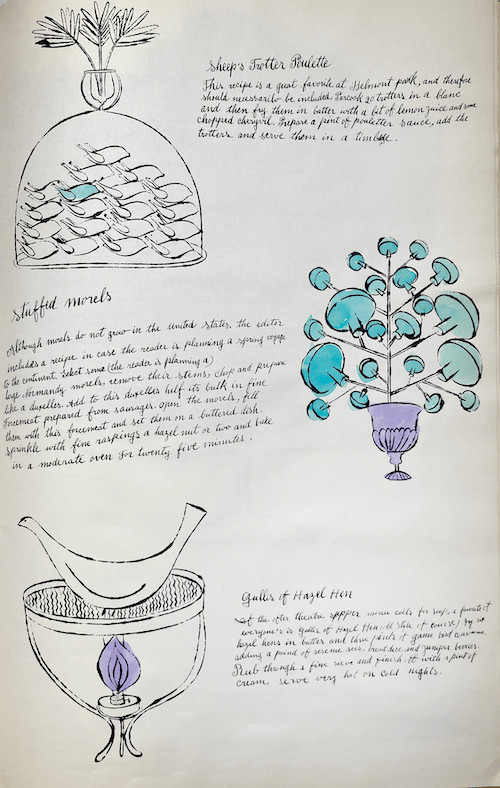 Sheep's Trotter Poulette
This recipe is a great favorite at Belmont park, and therefore
should necessarilo be included. Parcook 20 trotters in a blanc
and then fry them in batter with a bit of lemon juice and some
chopped chervil. Prepare a pint of pouletter sauce, add the
trotters and serve them in a timbale.
Stuffed morels
Although morels do not grow in the United States, the editor
includes a recipe in case the reader is planning a spring voyage
to the continent. Select some (the reader is planning a)
large Normandy morels, remove their stems, chop and prepare
like a duxelles. Add to this duxelles half its bulk in fine
forcemeat prepared from sausages. Open the morels, fill
them with this forcemeat and set them on a buttered dish.
Sprinkle with fine raspings a hazel nut or two and bake
in a moderate oven for twenty five minutes.
of Hazel Hen
the after theatre supper menu calls for soup, a favorite of
everyone's is of Hazel Hen (old style of course) Fry
hazel hens in butter and three pints of game
adding a pound of bread dice, and juniper berries.
Rub through a fine sieve and finish it with a pint of
cream, serve very hot on cold nights.